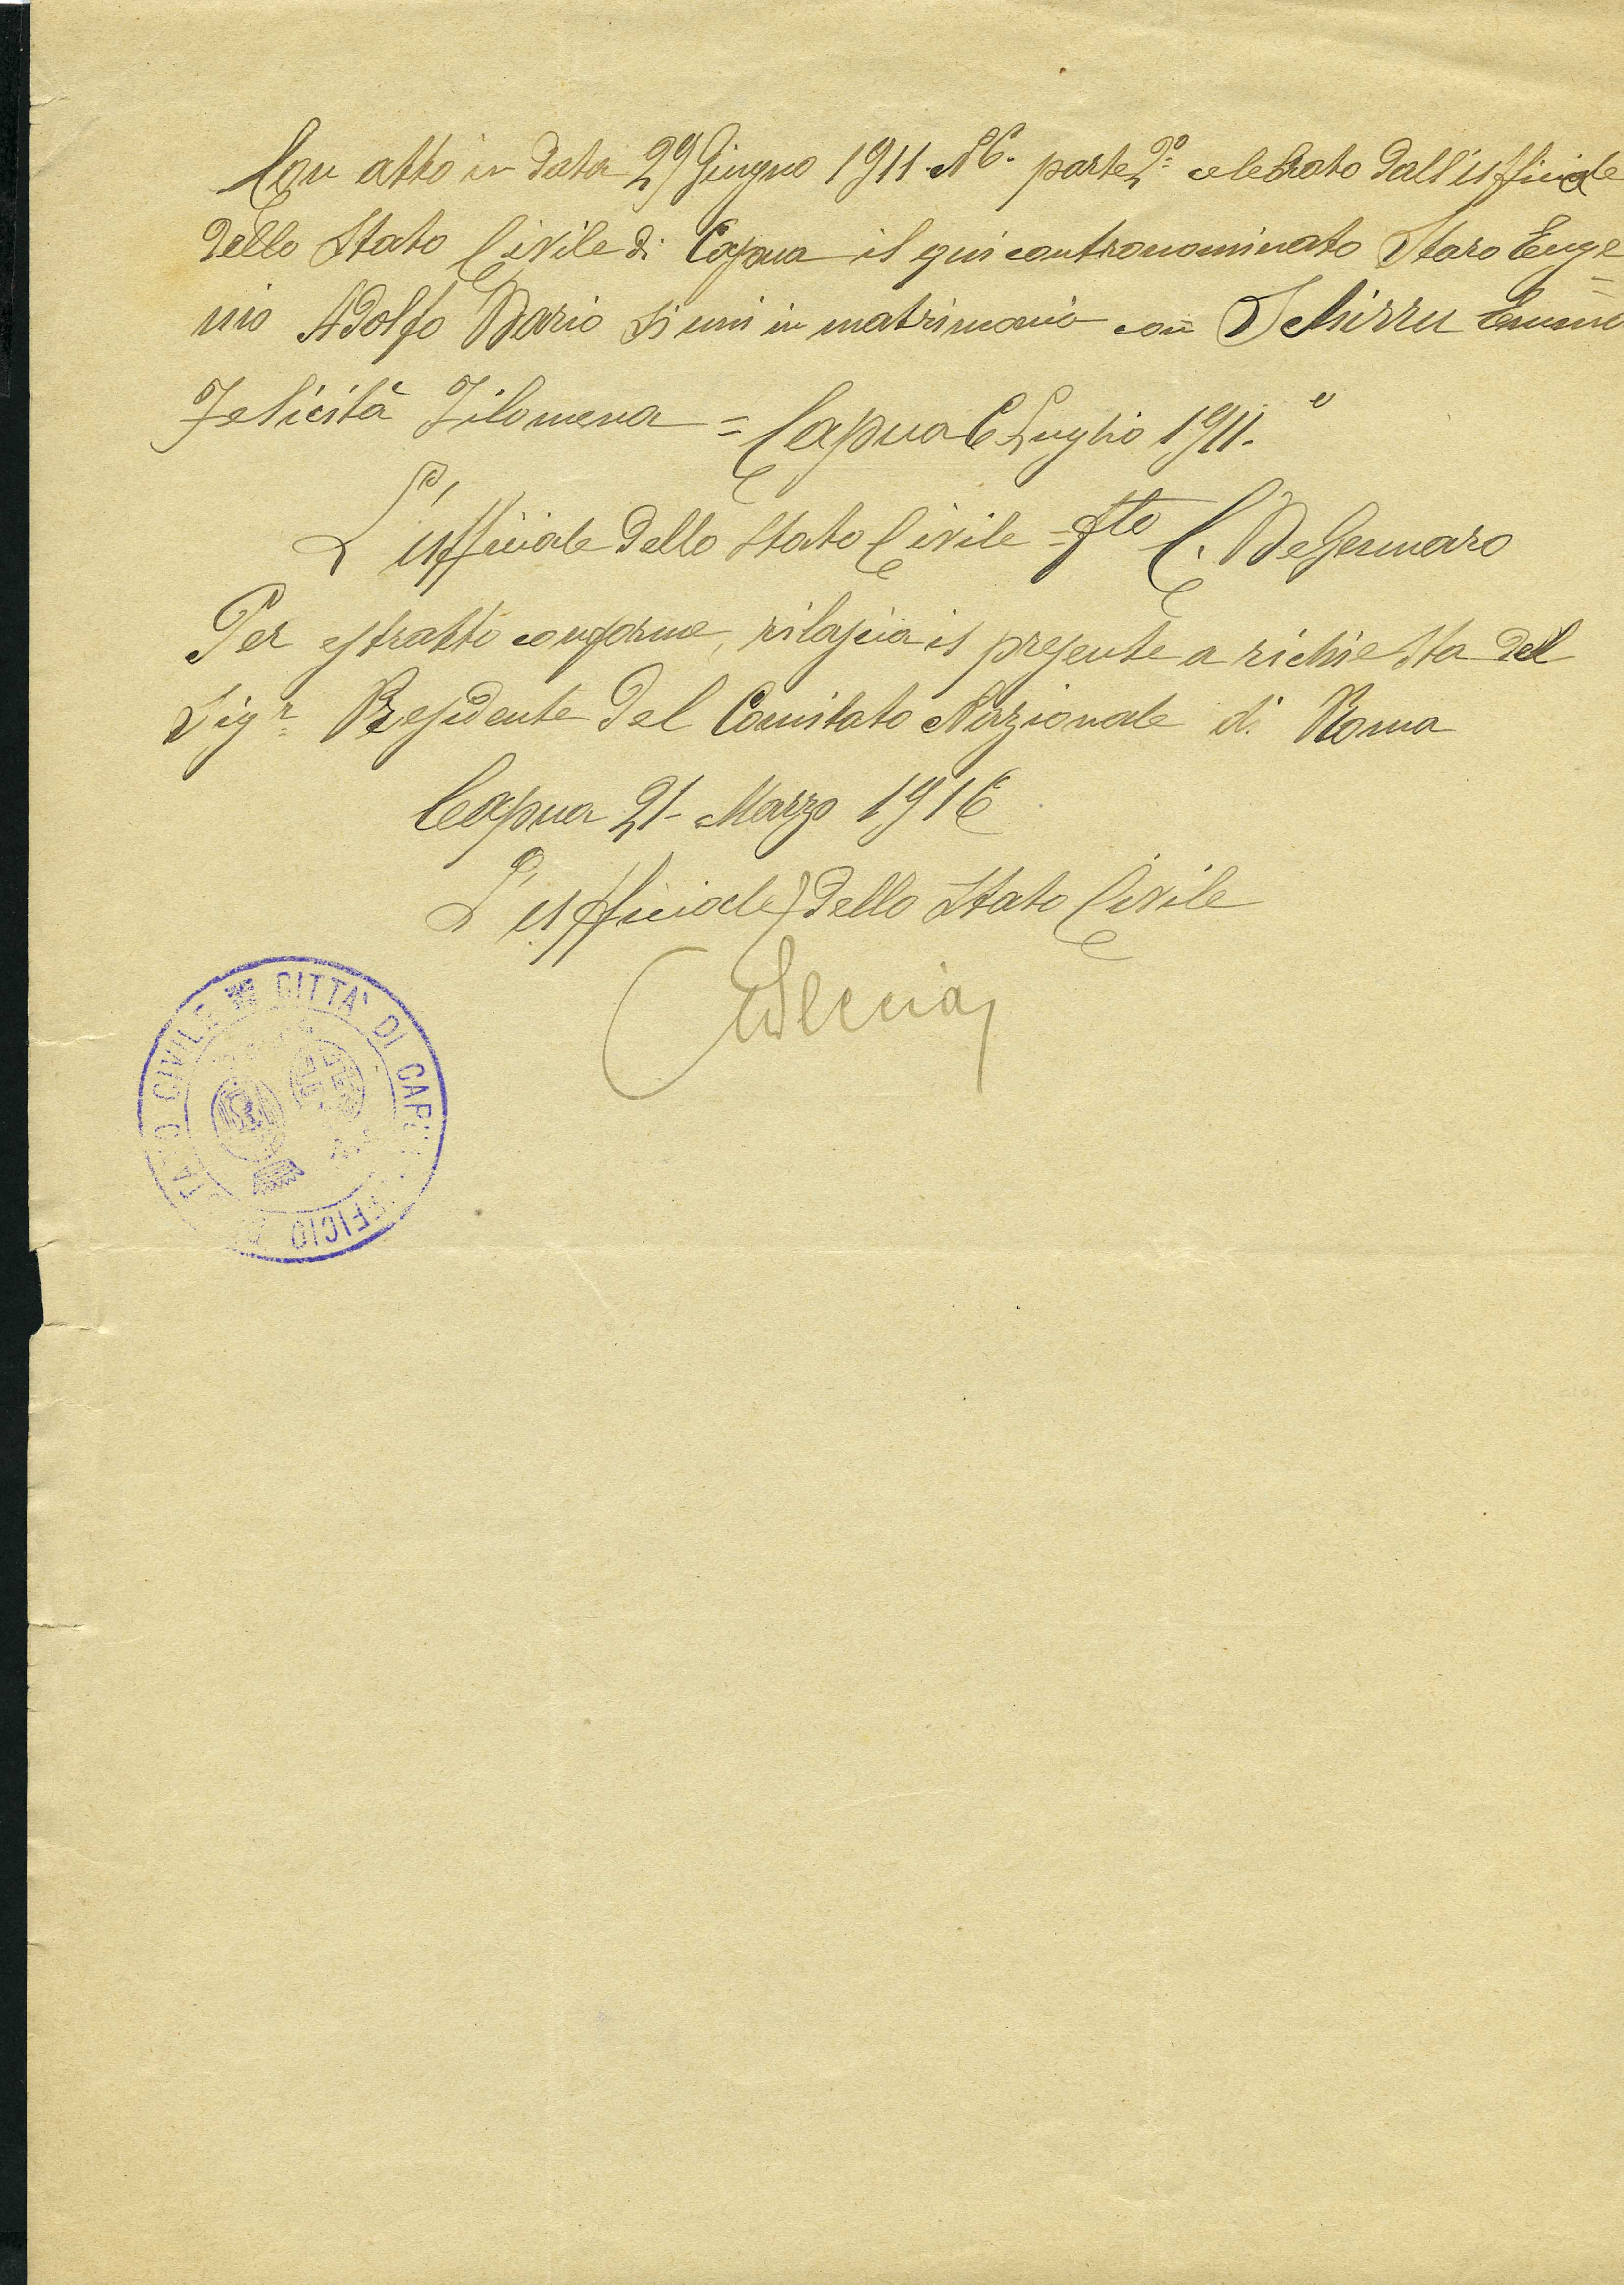 Con atto in data 29 Giugno 1911. N 6. parte 2ª celebrato dall'ufficiale
dello Stato Civile di Capua il qui contronominato Staro Euge=
nio Adolfo Mario si unì in matrimonio con Schirru Emma
Felicità Filomena = Capua 6 Luglio 1911. "
L'ufficiale dello Stato Civile = fto C. De Gennaro
Per estratto conforme, rilascia il presente a richiesta del
Sigr Presidente del Comitato Nazionale di Roma
Capua 21 - Marzo 1916
L'ufficiale dello Stato Civile
CITTA' DI CAPUA
UFFICIO
STATO CIVILE